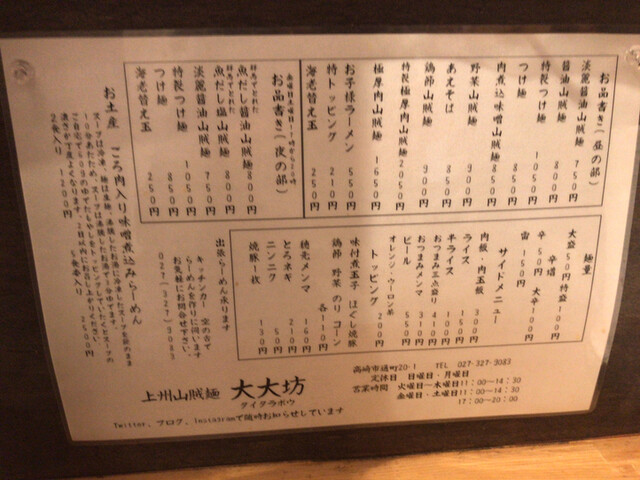 お品書き（昼の部）
淡麗醤油山賊麺 750円
醤油山賊麺 800円
特製つけ麺 1050円
つけ麺 850円
肉煮込味噌山賊麺 850円
野菜山賊麺 850円
あえそば 900円
鶏節山賊麺 900円
特製極厚肉山賊麺 2050円
極厚肉山賊麺 1650円
お子様ラーメン 550円
特トッピング 210円
海老替え玉 250円
お品書き（夜の部）
魚だし醤油山賊麺 800円
魚だし塩山賊麺 800円
淡麗醤油山賊麺 750円
特製つけ麺 1050円
つけ麺 850円
海老替え玉 250円
お土産 ごろ肉入り味噌煮込みらーめん
2食入り 1200円
麺量
大盛50円 特盛100円
辛増
辛50円 大辛100円
宙150円
サイドメニュー
肉飯・肉玉飯
ライス
半ライス
おつまみ三点盛り
おつまみメンマ
ビール 550円
オレンジ・ウーロン茶 200円
トッピング
味付煮玉子 ほぐし焼豚
鶏節 野菜 のり コーン
各110円
穂先メンマ 160円
とろネギ 210円
ニンニク 50円
焼豚1枚 150円
出張らーめん承ります
キッチンカー 空の舎で
らーめんを作りに行います
お気軽にお問合せ下さい。
027(327)3083
高崎市通町20-1 TEL 027-327-3083
定休日 日曜日・月曜日
営業時間 火曜日ー木曜日11:00〜14:30
金曜日・土曜日11:00〜14:30
17:00〜20:00
上州山賊麺 大大坊
ダイダラボウ
Twitter、ブログ、Instagramで随時お知らせしています